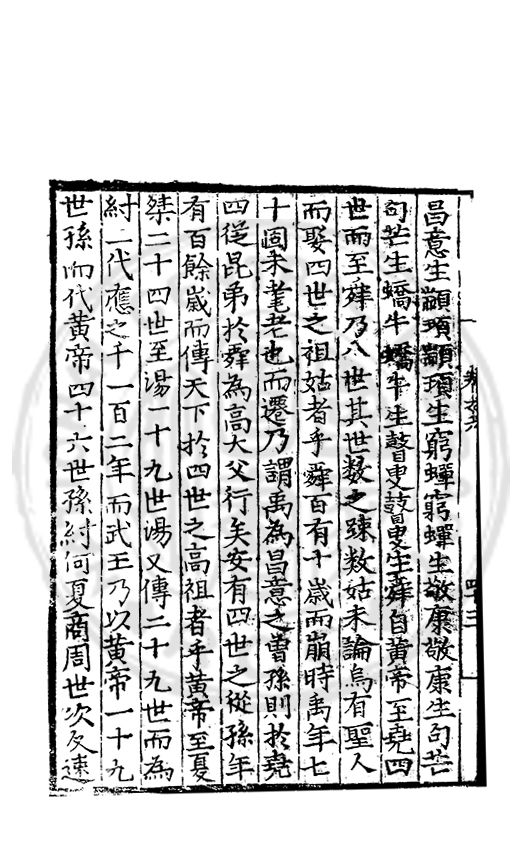 昌意生顓頊顓頊生窮蟬窮蟬生敬康敬康生句芒
句芒生蟜牛蟜牛生瞽叟瞽叟生舜自黃帝至堯四
世而至舜乃八世其世數之踈数姑未論烏有聖人
而娶四世之祖姑者乎舜百有十歲而崩時禹年七
十固未耄老也而遷乃謂禹為昌意之曾孫則扵堯
四從昆弟扵舜為高大父行矣安有四世之從孫年
有百餘歲而傳天下扵四世之高祖者乎黃帝至夏
桀二十四世至湯一十九世湯又傳二十九世而為
紂二代應之千一百二年而武王乃以黃帝一十九
世孫而代黃帝四十六世孫紂何夏商周世次反速
四十三